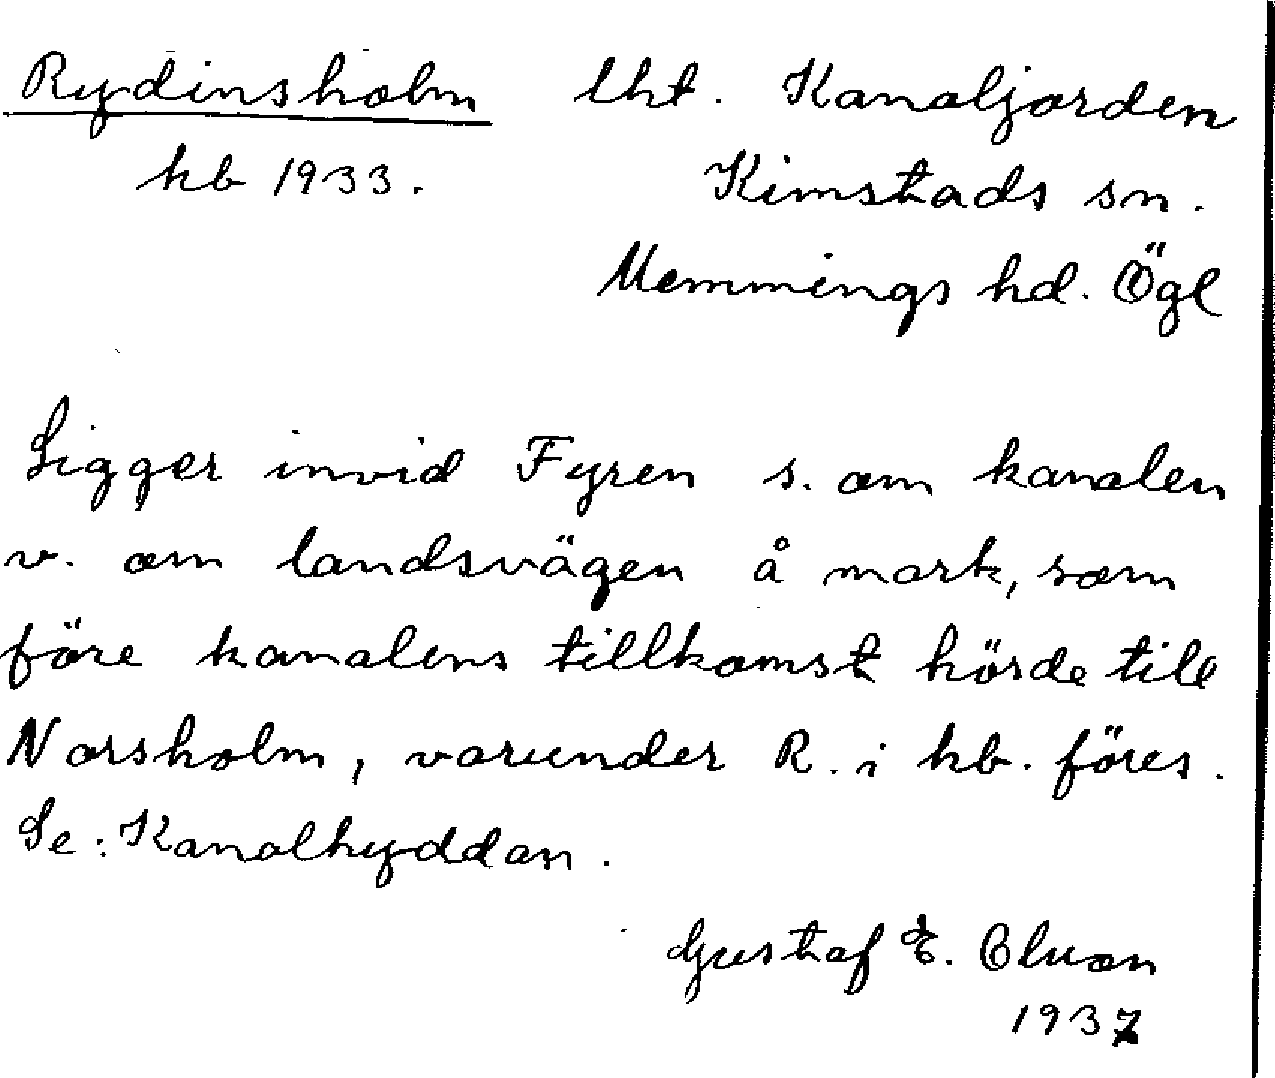 Rydinsholm lht. Kanaljorden
kb 1933. Kimstads sn.
Memmings hd. Ögl
Ligger invid Fyren s. om kanalen
v. om landsvägen å mark, som
före kanalens tillkomst hörde till
Norsholm, varunder R. i kb. föres.
Se: Kanalhyddan.
Gustaf E. Cluson
1937